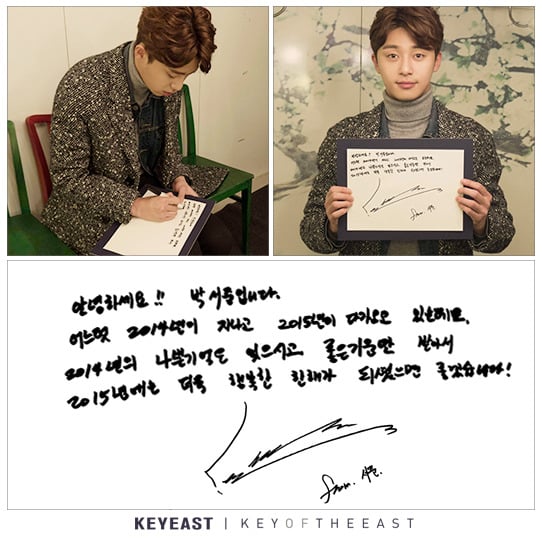 안녕하세요!! 박서준입니다.
어느덧 2014년이 지나고 2015년이 다가오고 있는데요,
2014년의 나쁜기억은 잊으시고, 좋은기운만 받아서
2015년에는 더욱 행복한 한해가 되셨으면 좋겠습니다!
from. 서준.
KEYEAST | KEYOFTHEEAST